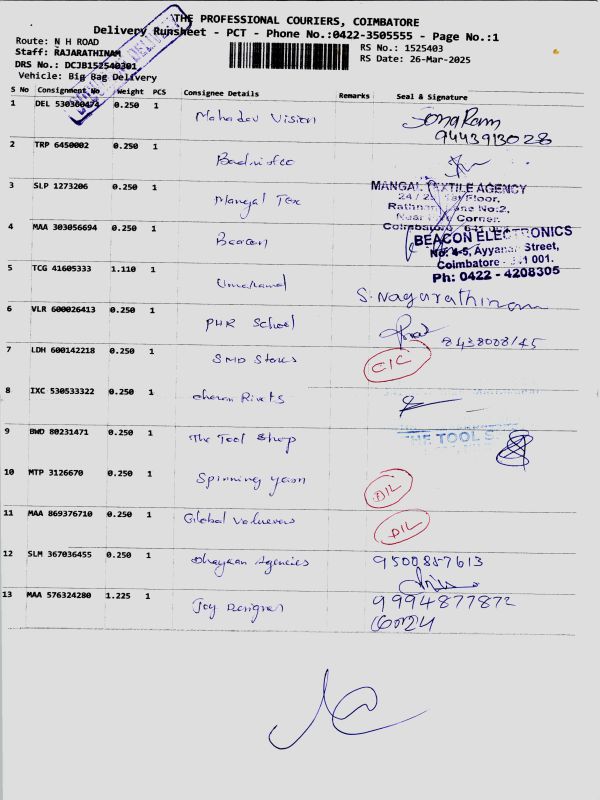 THE PROFESSIONAL COURIERS, COIMBATORE
Delivery Runsheet - PCT - Phone No.:0422-3505555 - Page No.:1
Route: N H ROAD
Staff: RAJARATHINAM
DRS No.: DCJB152540301
Vehicle: Big Bag Delivery
RS No.: 1525403
RS Date: 26-Mar-2025
S No Consignment No Weight PCS Consignee Details Remarks Seal & Signature
1 DEL 530360474 0.250 1 Mahadev Vision
9443913028
2 TRP 6450002 0.250 1
3 SLP 1273206 0.250 1 Mangal Tex
MANGAL TEXTILE AGENCY
4 MAA 303056694 0.250 1 Beacon
BEACON ELECTRONICS
No. 4-5, Ayyanar Street,
Coimbatore - 641 001.
Ph: 0422 - 4208305
5 TCG 41605333 1.110 1 S. Nagarathinam
6 VLR 600026413 0.250 1 PHR School
7 LDH 600142218 0.250 1 SMD Stores CIC
8 IXC 530533322 0.250 1 Cheran Rivets
9 BWD 80231471 0.250 1 The Tool Shop
THE TOOL S
10 MTP 3126670 0.250 1 Spinning yarn DIL
11 MAA 869376710 0.250 1 Global Valuevers DIL
12 SLM 367036455 0.250 1 Dhayaan Agencies 9500857613
13 MAA 576324280 1.225 1 Joy Designer 9994877872